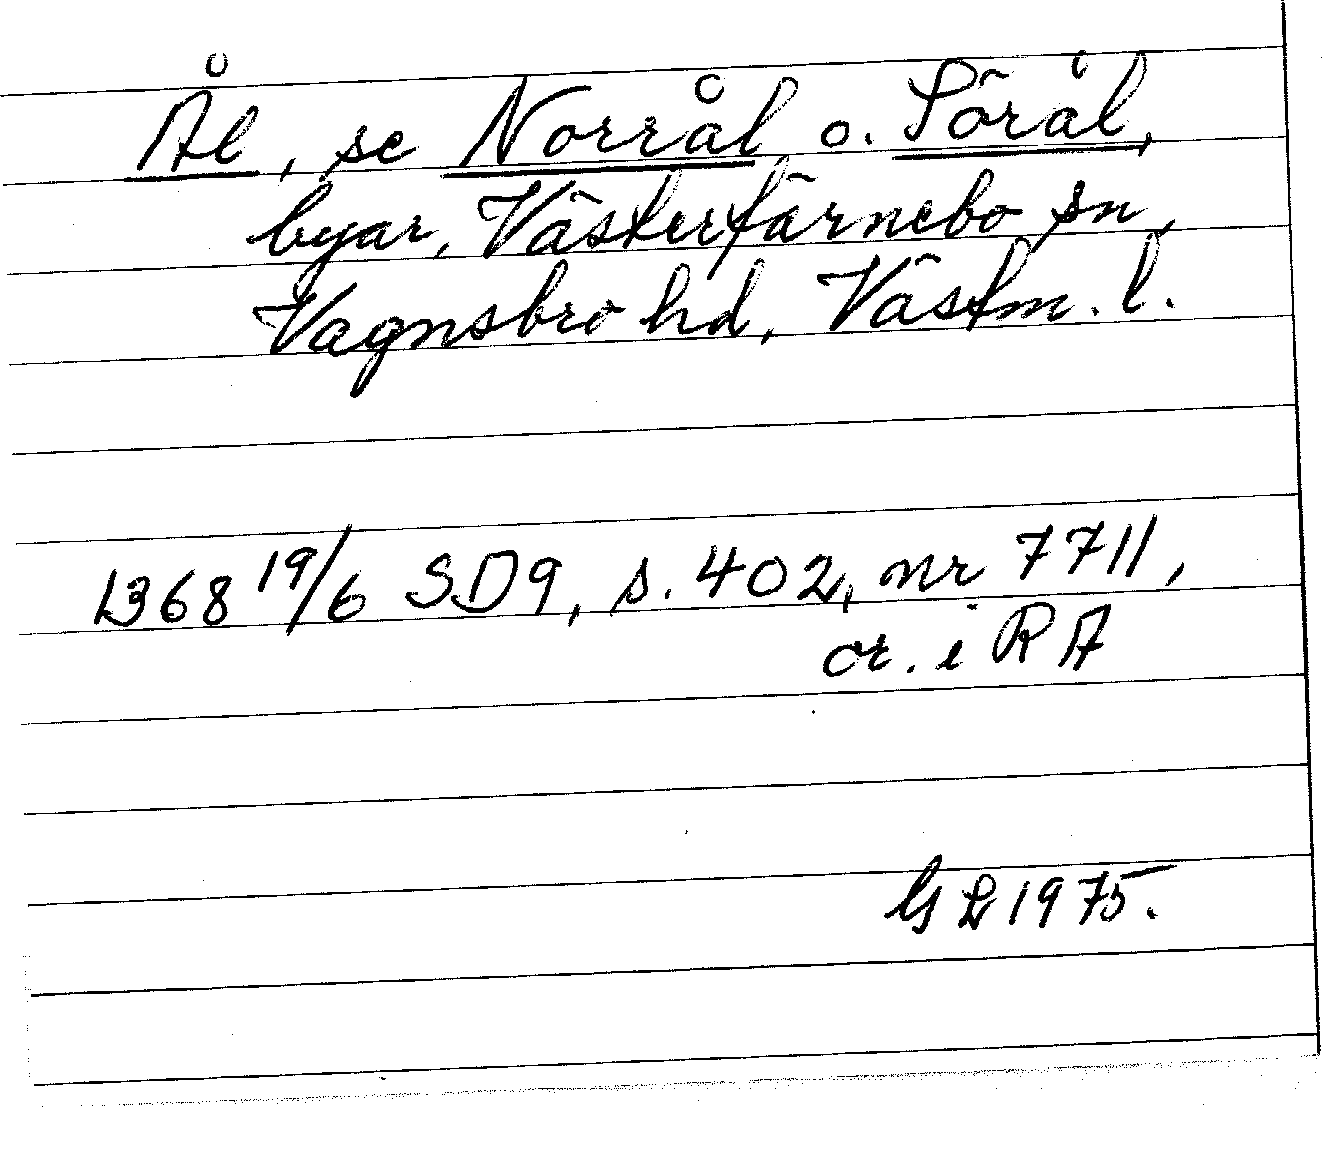 Ål, se Norrål o. Sörål,
byar, Västerfärnebo sn,
Vagnsbro hd, Västm. l.
1368 19/6 SD9, s. 402, nr 7711,
or. i RA
GL 1975.